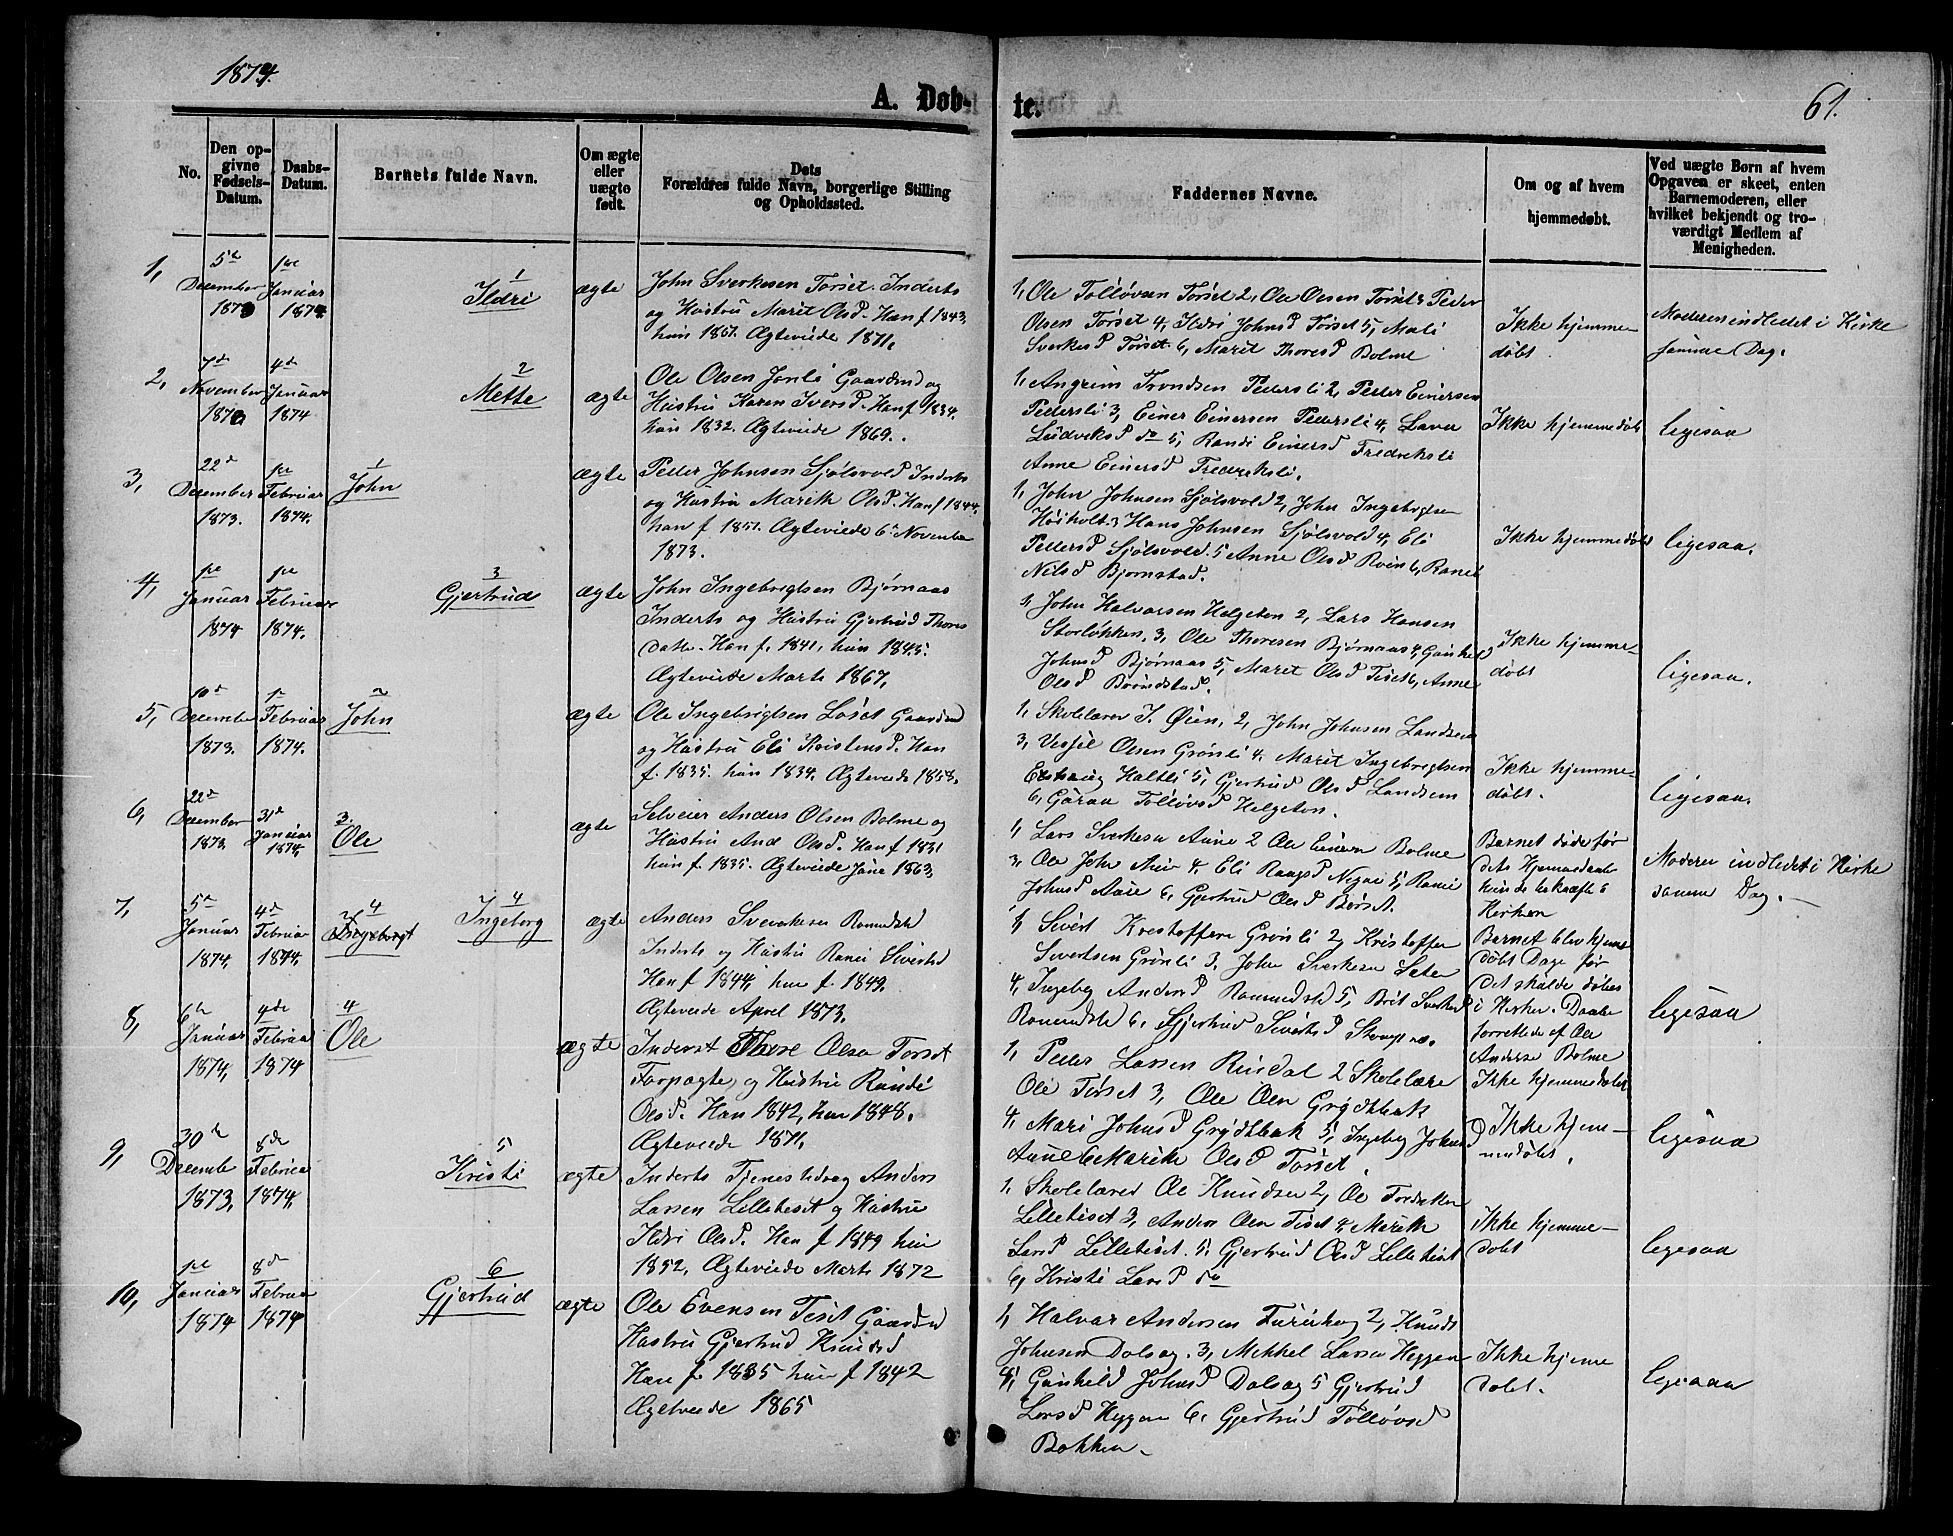 1874.
A. Døb-
te.
61.
No.
Den op-
givne
Fødsels-
Datum.
Daabs-
Datum.
Barnets fulde Navn.
Om ægte
eller
uægte
født.
Dets
Forældres fulde Navn, borgerlige Stilling
og Opholdssted.
Faddernes Navne.
Om og af hvem
hjemmedøbt.
Ved uægte Børn af hvem
Opgaven er skeet, enten
Barnemoderen, eller
hvilket bekjendt og tro-
værdigt Medlem af
Menigheden.
1,
5te
December
1873
1ste
Januar
1874
1
Ildri
ægte
John Sverkesen Torset Inderts
og Hustru Marit Olsd. Han f 1843,
hun 1851. Ægteviede 1871.
1, Ole Tolløvsen Torset 2, Ole Olsen Torset 3, Peder
Olsen Torset 4, Ildri Johnsd Torset 5, Mali
Sverkesd Torset 6, Marit Thoresd Bolme
Ikke hjemme-
døbt.
Moderen indledet i Kirke
samme Dag.
2,
7de
November
1873
4de
Januar
1874
2
Mette
ægte
Ole Olsen Jonli Gaardmd og
Hustru Karen Iversd. Han f 1834,
hun 1832. Ægteviede 1869.
1, Angrim Trondsen Pedersli 2, Peder Einersen
Pedersli 3, Einer Einersen Pedersli 4, Lava
Ludviksd do 5, Randi Einersd Fredriksli
Anne Einersd Fredriksli.
Ikke hjemmedøbt
ligesaa
3,
22de
December
1873.
1ste
Februar
1874.
1
John
ægte
Peder Johnsen Sjølsvold Inderts
og Hustru Marith Olsd. Han f 1844,
hun f 1851. Ægteviede 6te November
1873.
1, John Johnsen Sjølsvold 2, John Ingebrigtsen
Høiholt 3, Hans Johnsen Sjølsvold 4, Eli
Pedersd Sjølsvold. 5 Anne Olsd Roin 6, Ranei
Nilsd Bjørnstad.
Ikke hjemmedøbt
ligesaa.
4,
1ste
Januar
1874
1ste
Februar
1874.
3
Gjertrud
ægte
John Ingebrigtsen Bjørnaas
Inderts og Hustru Gjertrud Thores
datter. Han f. 1841, hun 1845.
Ægteviede Marts 1867.
1, John Halvorsen Helgeton 2, Lars Hansen
Storløkken, 3, Ole Thoresen Bjørnaas 4, Gunhild
Johnsd Bjørnaas 5, Marit Olsd Tiset 6, Anne
Olsd Brøndstad.
Ikke hjemme-
døbt
ligesaa.
5,
10de
December
1873.
1ste
Februar
1874.
2
John
ægte
Ole Ingebrigtsen Løset Gaardmd
og Hustru Eli Kristensd. Han
f. 1835. hun 1834. Ægteviede 1858.
1, Skolelærer J. Øien, 2, John Johnsen Landsem
3, Vessel Olsen Grønli 4, Marit Ingebrigtsen
Haltli 5, Gjertrud Olsd Landsem
6, Guraa Tolløvsd Helgeton.
Ikke hjemme-
døbt.
ligesaa.
6,
22de
December
1873
31de
Januar
1874,
3.
Ole
ægte
Selveier Anders Olsen Bolme og
Hustru Ane Olsd. Han f 1831
hun f 1835. Ægteviede June 1863.
1, Lars Sverkesen Aune 2 Ole Einersen Bolme
3, Ole John 4, Eli 5, Ranei
Johnsd Aune 6, Gjertrud Olsd Børset.
Barnet døde før
dets Hjemmedaab
kunde bekræftes
Kirken
Moderen indledet i Kirke
samme Dag.
7,
5te
Januar
1874,
4de
Februar
1874,
4
Ingeborgt
4
Ingeborg
ægte
Anders Sverkesen Romundstd
Inderts og Hustru Ranei Sivertsd
Han f 1844, hun f. 1849.
Ægteviede April 1873.
1, Sivert Kristoffersen Grønli 2, Kristoffer
Sivertsen Grønli 3, John Sverkesen Sæter
4, Ingebrg Andersd Romundstd 5, Brit Sverkesd
Romundstd 6, Gjertrud Sivertsd
Barnet blev hjem-
døbt Dage før
det skulde døbes
i Kirken. Daaben
forrettede af Ole
Andersen Bolme
ligesaa
8,
6te
Januar
1874,
4de
Februar
1874
4
Ole
ægte
Inderst Thore Olsen Torset
Forpagter, og Hustru Randi
Olsd. Han 1842, hun 1848.
Ægteviede 1871.
1, Peder Larsen Rindal 2 Skolelærer
Ole Torset 3, Ole Olsen Grydtbak
4, Mari Johnsd Grydtbak 5, Ingebrg Johnsd
Aune 6 Marith Olsd Torset.
Ikke hjemmedøbt
Ikke hjem-
medøbt.
ligesaa
9,
30te
December
1873,
8de
Februar
1874,
5
Kristi
ægte
Inderts Tjenestedreng Anders
Larsen Lilletiset og Hustru
Ildri Olsd. Han f 1849 hun
1852, Ægteviede Marts 1872
1, Skolelærer Ole Knudsen 2, Ole
Lilletiset 3, Anders Olsen Tiset 4, Marith
Larsd Lilletiset. 5, Gjertrud Olsd Lilletiset
6, Kristi Larsd do
Ikke hjemme-
døbt
ligesaa
10,
1ste
Januar
1874
8de
Februar
1874
6
Gjertrud
ægte
Ole Evensen Teset Gaardmd
Hustru Gjertrud Knudsd
Han f 1835 hun f 1842
Ægteviede 1865
1, Halvar Andersen Furuhog 2, Knud
Johnsen Dalsag. 3, Mikkel Larsen Heggen
4, Gunhild Johnsd Dalsag 5 Gjertrud
Larsd Heggen 6, Gjertrud Tolløvsd
Bakken.
Ikke hjemme
døbt.
ligesaa